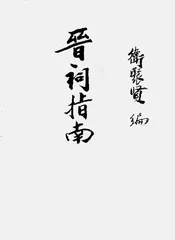 晋祠指南
衛聚賢 編